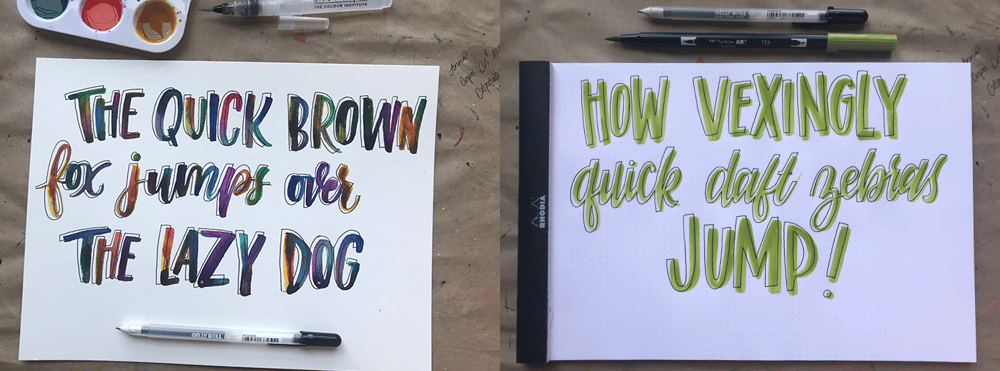 THE COLOUR INSTITUTE
THE QUICK BROWN
fox jumps over
THE LAZY DOG
GELLY ROLL
HOW VEXINGLY
quick daft zebras
JUMP!
RHODIA